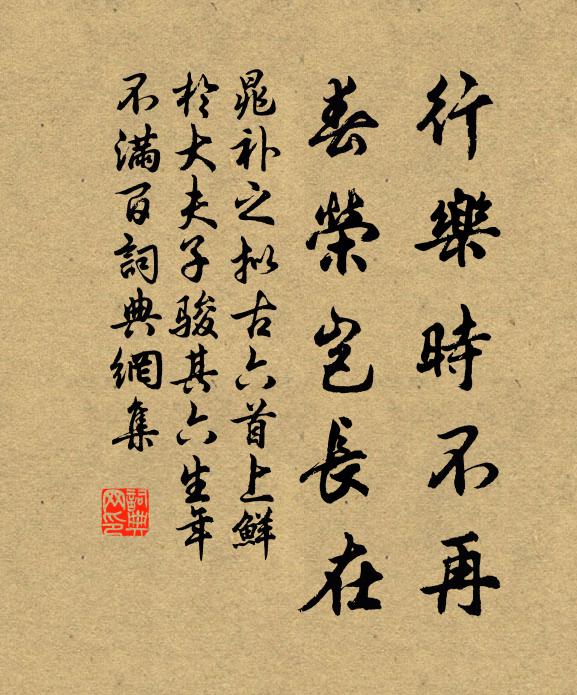 行樂時不再
春榮豈長在
晁补之拟古六首上鮮
於大夫子骏其六生年
不滿百詞典網集
詞典
网印